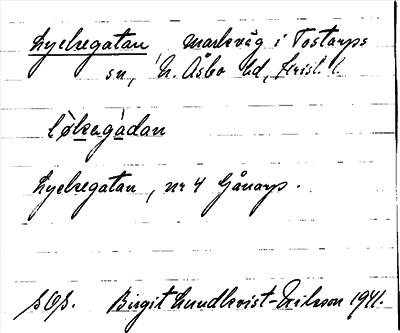 Lyckegatan, markväg i Tostarps
sn, N. Åsbo hd, Krist. l.
lökegadan
Lyckegatan, nr 4 Gånarp.
s. O. s. Birgit Lundkvist-Nilsson 1941.